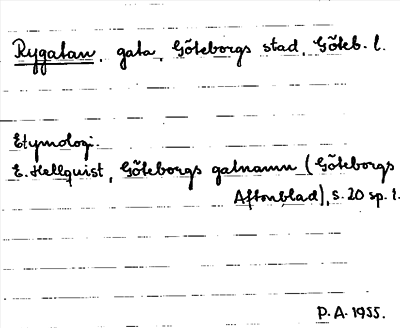 Rygatan, gata, Göteborgs stad, Göteb. l.
Etymologi.
E. Hellquist, Göteborgs gatnamn (Göteborgs
Aftonblad), s. 20 sp. 1.
P. A. 1955.